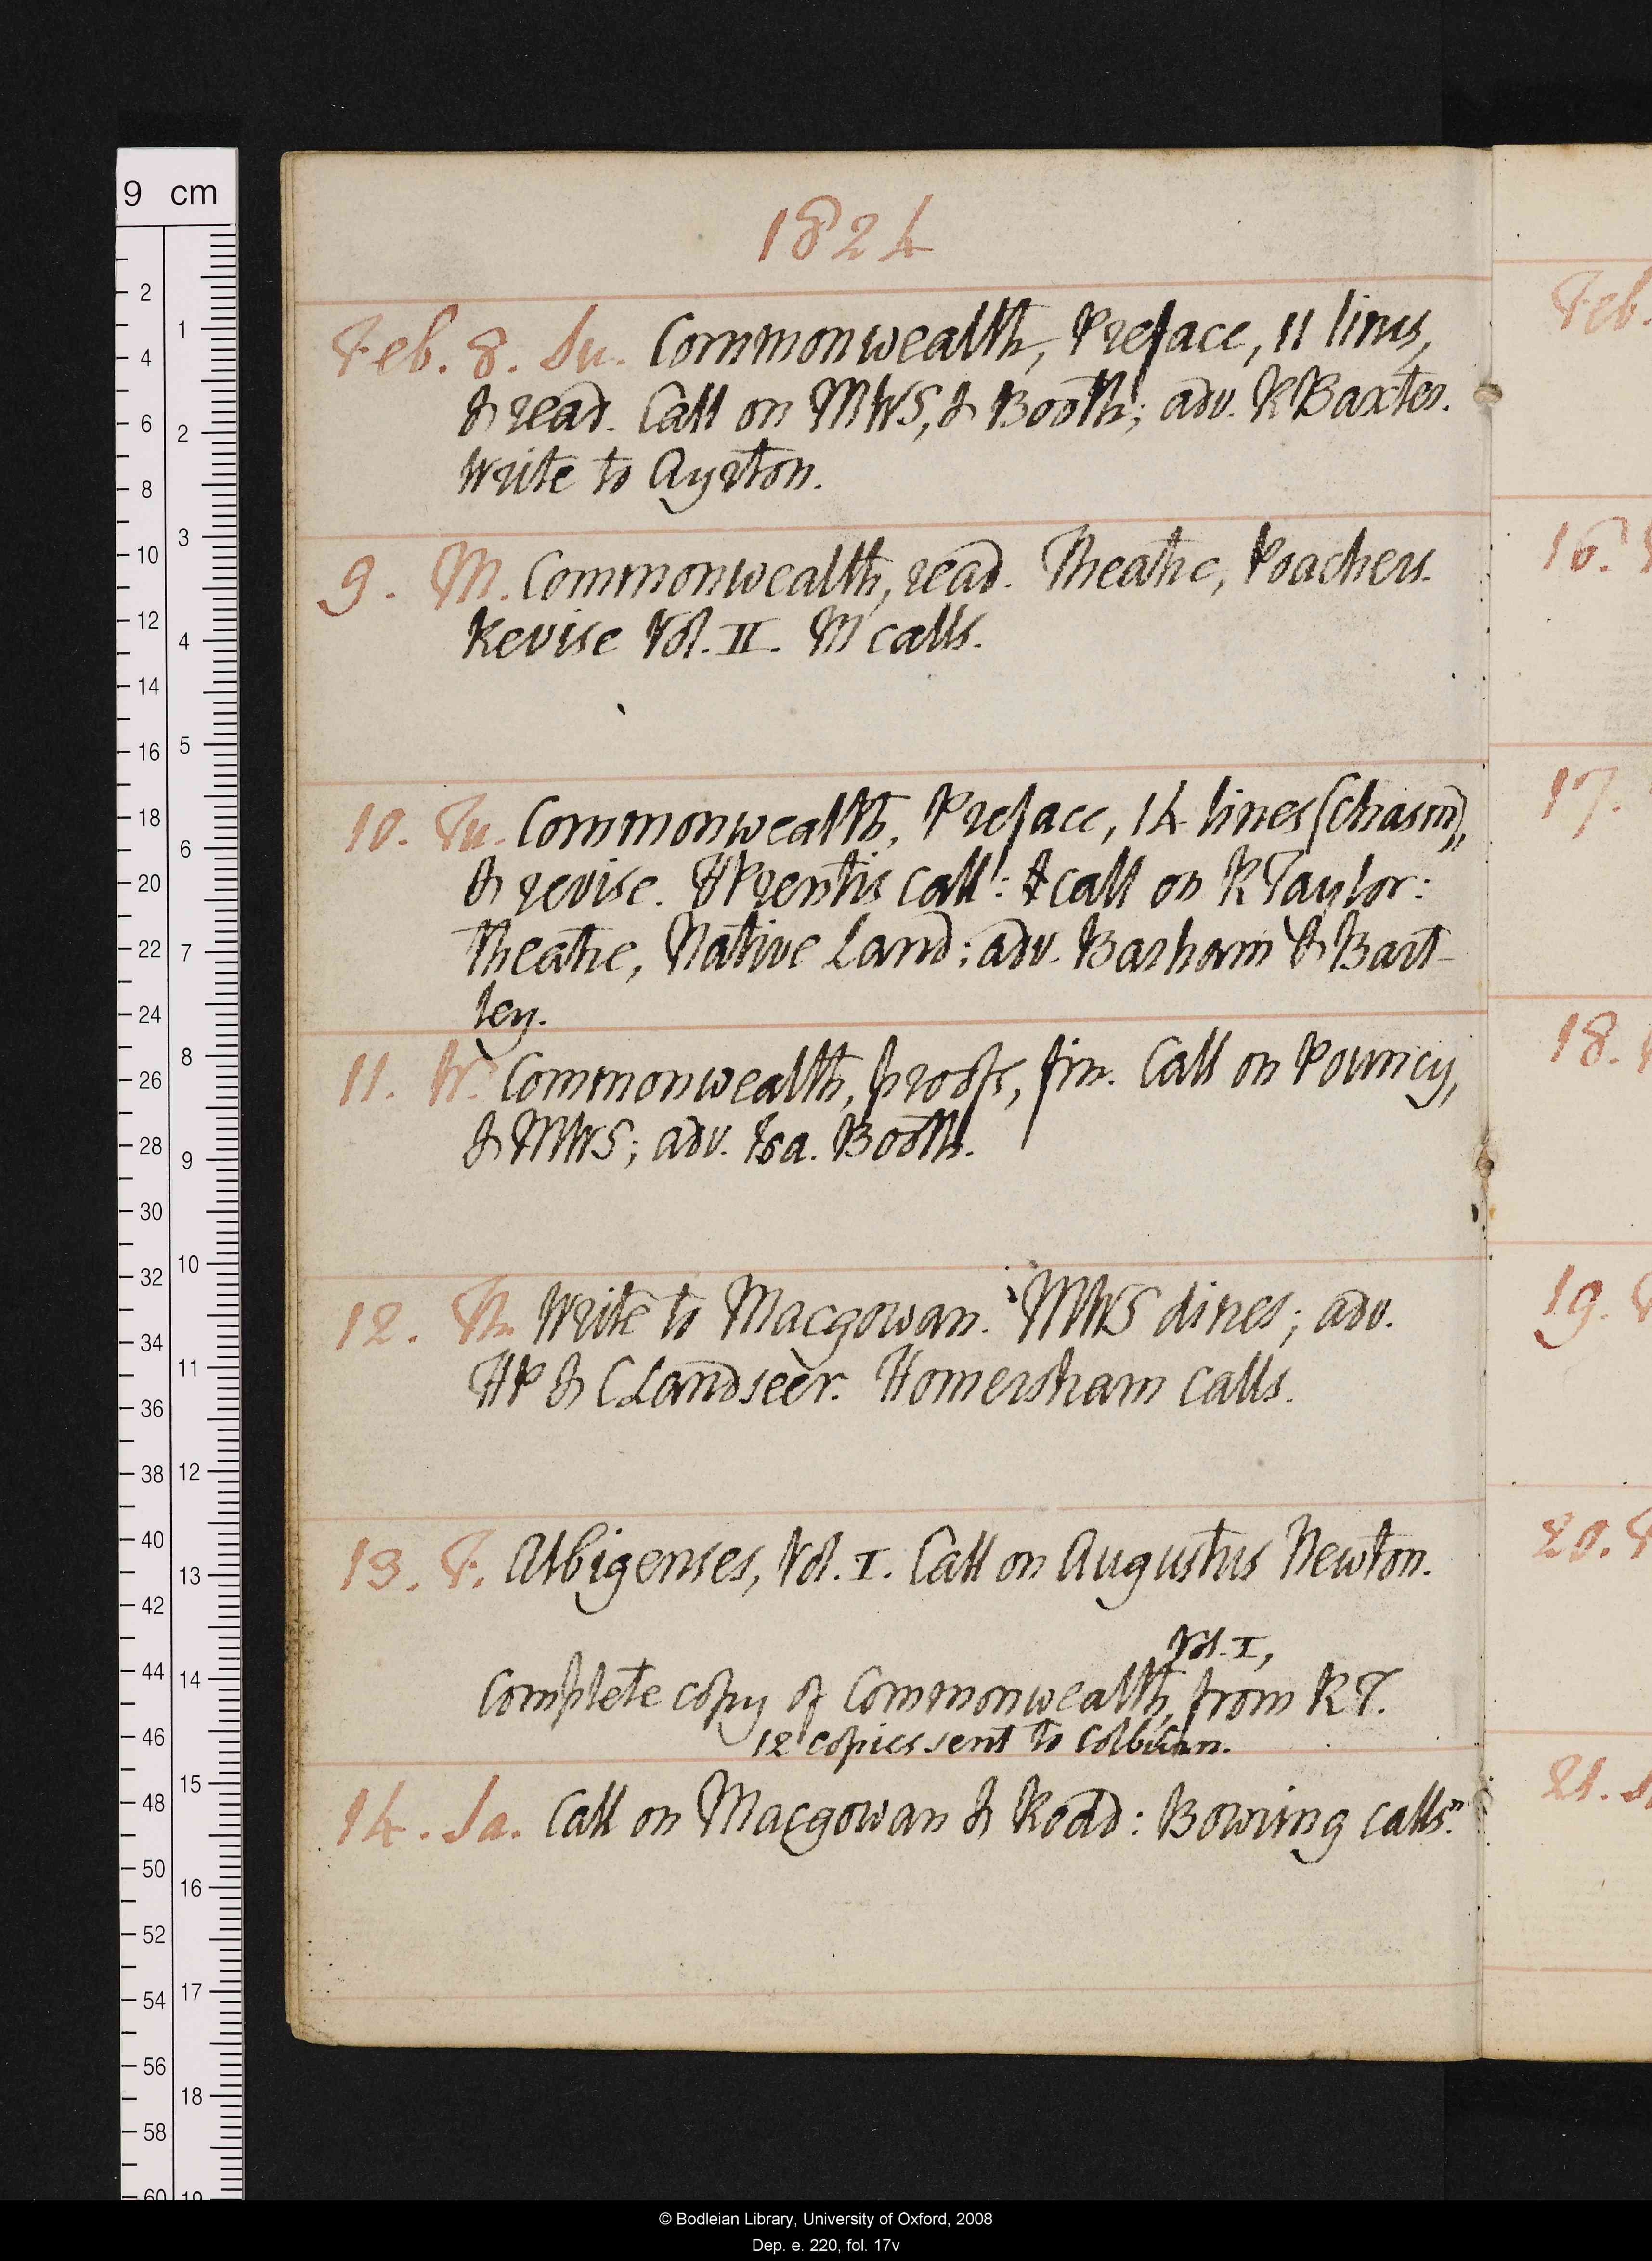 9 cm
1824
Feb. 8. Su. Commonwealth, Preface, 11 lines,
& read. Call on MWS, & Booth; adv. R Baxter.
Write to Ayrton.
9. M. Commonwealth, read. Theatre, Poachers.
Revise Vol. II. M calls.
10. Tu. Commonwealth, Preface, 14 lines (chasm),
& revise. H Prentis call: & call on R Taylor:
Theatre, Native Land; adv. Barham & Bart-
ley.
11. W. Commonwealth, proofs, fin. Call on Pouncy,
& MWS; adv. Isa. Booth.
12. Th. Write to Macgowan. MWS dines; adv.
HP & C Landseer. Homersham calls.
13. F. Albigenses, Vol. I. Call on Augustus Newton.
Vol. I,
Complete copy of Commonwealth, from RT.
12 copies sent to Colburn.
14. Sa. Call on Macgowan & Rodd: Bowring calls.
Feb.
16.
17.
18.
19.
20.
21.
2 4 6 8 10 12 14 16 18 20 22 24 26 28 30 32 34 36 38 40 42 44 46 48 50 52 54 56 58 60
1 2 3 4 5 6 7 8 9 10 11 12 13 14 15 16 17 18 19
© Bodleian Library, University of Oxford, 2008
Dep. e. 220, fol. 17v